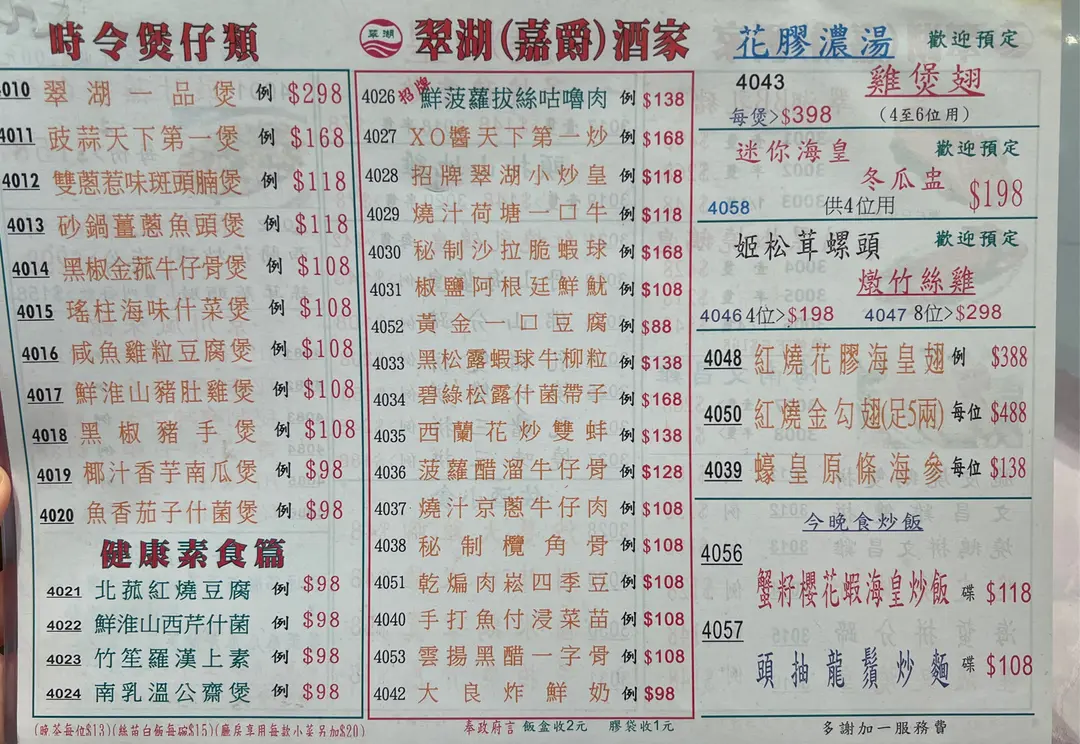 時令煲仔類
4010 翠湖一品煲 例 $298
4011 豉蒜天下第一煲 例 $168
4012 雙蔥惹味斑頭腩煲 例 $118
4013 砂鍋薑蔥魚頭煲 例 $118
4014 黑椒金菰牛仔骨煲 例 $108
4015 瑤柱海味什菜煲 例 $108
4016 咸魚雞粒豆腐煲 例 $108
4017 鮮淮山豬肚雞煲 例 $108
4018 黑椒豬手煲 例 $108
4019 椰汁香芋南瓜煲 例 $98
4020 魚香茄子什菌煲 例 $98
健康素食篇
4021 北菰紅燒豆腐 例 $98
4022 鮮淮山西芹什菌 例 $98
4023 竹笙羅漢上素 例 $98
4024 南乳溫公齋煲 例 $98
(晚茶每位$13)(絲苗白飯每碗$15)(廳房享用每款小菜另加$20)
翠湖 翠湖(嘉爵)酒家
4026 招牌 鮮菠蘿拔絲咕嚕肉 例 $138
4027 XO醬天下第一炒 例 $168
4028 招牌翠湖小炒皇 例 $118
4029 燒汁荷塘一口牛 例 $118
4030 秘制沙拉脆蝦球 例 $168
4031 椒鹽阿根廷鮮魷 例 $108
4052 黃金一口豆腐 例 $88
4033 黑松露蝦球牛柳粒 例 $138
4034 碧綠松露什菌帶子 例 $168
4035 西蘭花炒雙蚌 例 $138
4036 菠蘿醋溜牛仔骨 例 $128
4037 燒汁京蔥牛仔肉 例 $108
4038 秘制欖角骨 例 $108
4051 乾煸肉崧四季豆 例 $108
4040 手打魚付浸菜苗 例 $108
4053 雲揚黑醋一字骨 例 $108
4042 大良炸鮮奶 例 $98
奉政府言 飯盒收2元 膠袋收1元
花膠濃湯 歡迎預定
4043 雞煲翅
每煲>$398 (4至6位用)
迷你海皇 歡迎預定
冬瓜盅 $198
4058 供4位用
姬松茸螺頭 歡迎預定
燉竹絲雞
4046 4位>$198 4047 8位>$298
4048 紅燒花膠海皇翅 例 $388
4050 紅燒金勾翅(足5兩) 每位 $488
4039 蠔皇原條海參 每位 $138
今晚食炒飯
4056
蟹籽櫻花蝦海皇炒飯 碟 $118
4057
頭抽龍鬚炒麵 碟 $108
多謝加一服務費